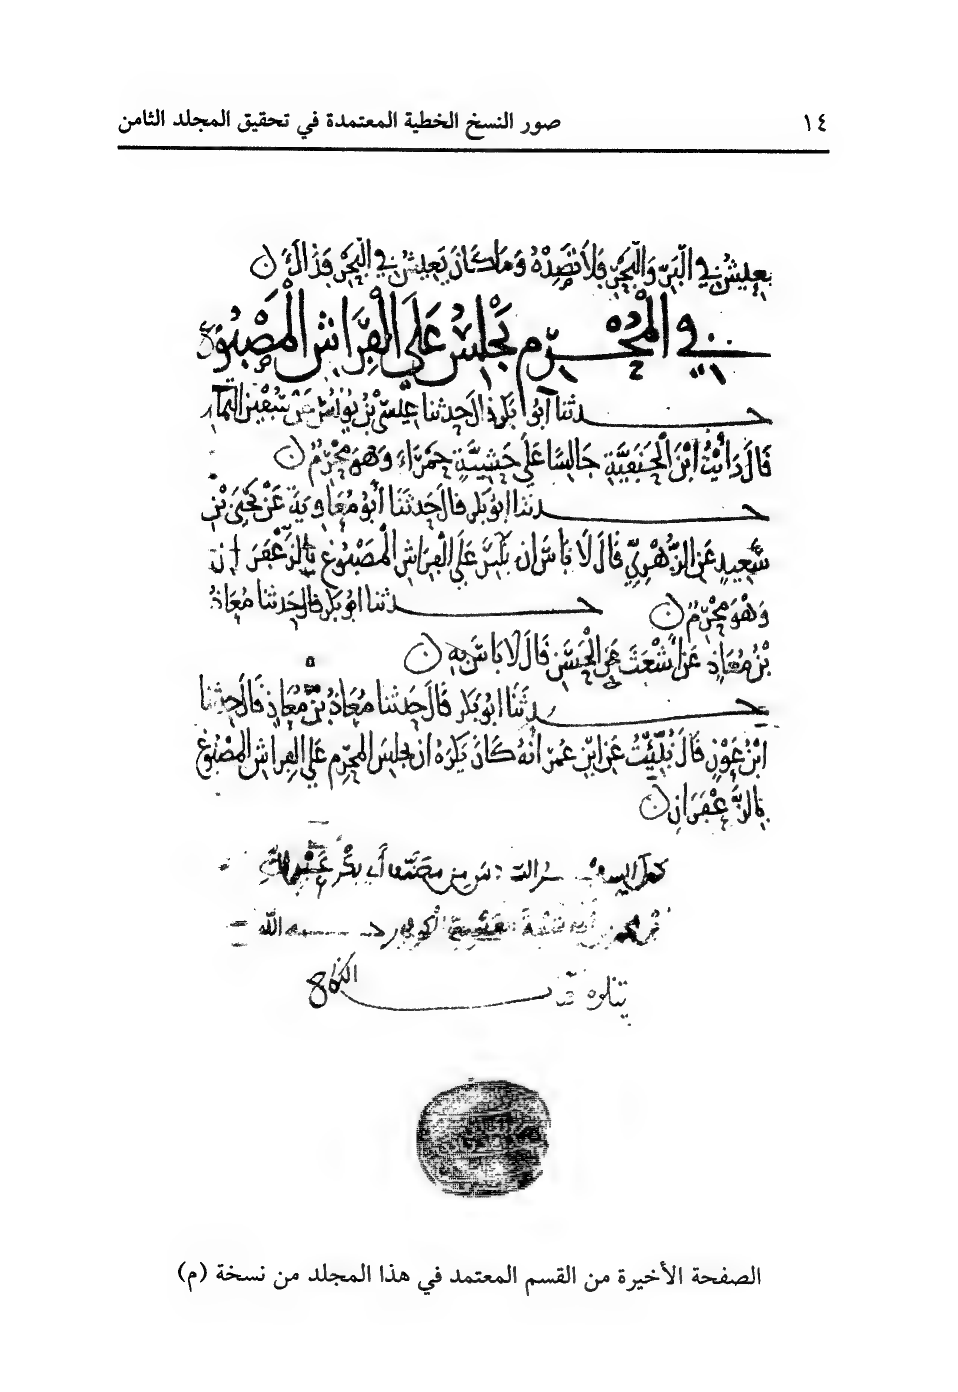 ١٤ صور النسخ الخطية المعتمدة في تحقيق المجلد الثامن
يعيش في البر والبحر فلا تصده وما كان يعيش في البحر فذاك
في المحرم يجلس على الفراش المصبوغ
حدثنا ابو بكر قال حدثنا عيسى بن يونس عن سفين التمار
قال رأيت ابن الحنفية جالسا على حشية حمراء وهو محرم
حدثنا ابو بكر قال حدثنا أبو معاوية عن يحيى بن
سعيد عن الزهري قال لا باس ان يجلس على الفراش المصبوغ بالزعفران
وهو محرم حدثنا ابو بكر قال حدثنا معاذ
بن معاذ عن أشعث عن الحسن قال لا باس به
حدثنا ابو بكر قال حدثنا معاذ بن معاذ قال حدثنا
ابن عون قال نبئت عن ابن عمر انه كان يكره ان يجلس المحرم على الفراش المصبوغ
بالزعفران
كمل السفر من مصنف أبي بكر عبد الله
بن محمد بن أبي شيبة الكوفي رحمه الله
يتلوه
الصفحة الأخيرة من القسم المعتمد في هذا المجلد من نسخة (م)